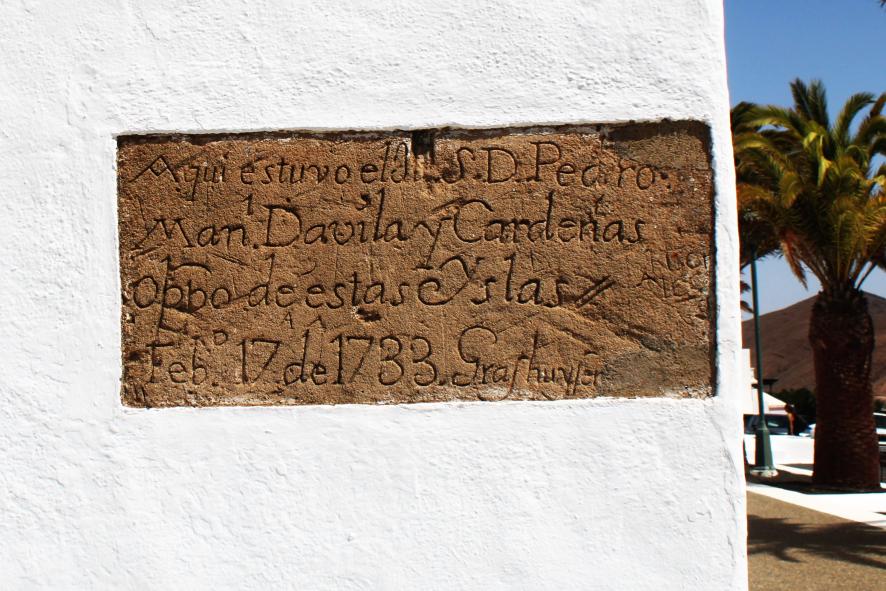 Aqui estuvo el Il. S. D. Pedro.
Man.l Davila y Cardenas
Obpo de estas Yslas
Feb.o 17 de 1733.